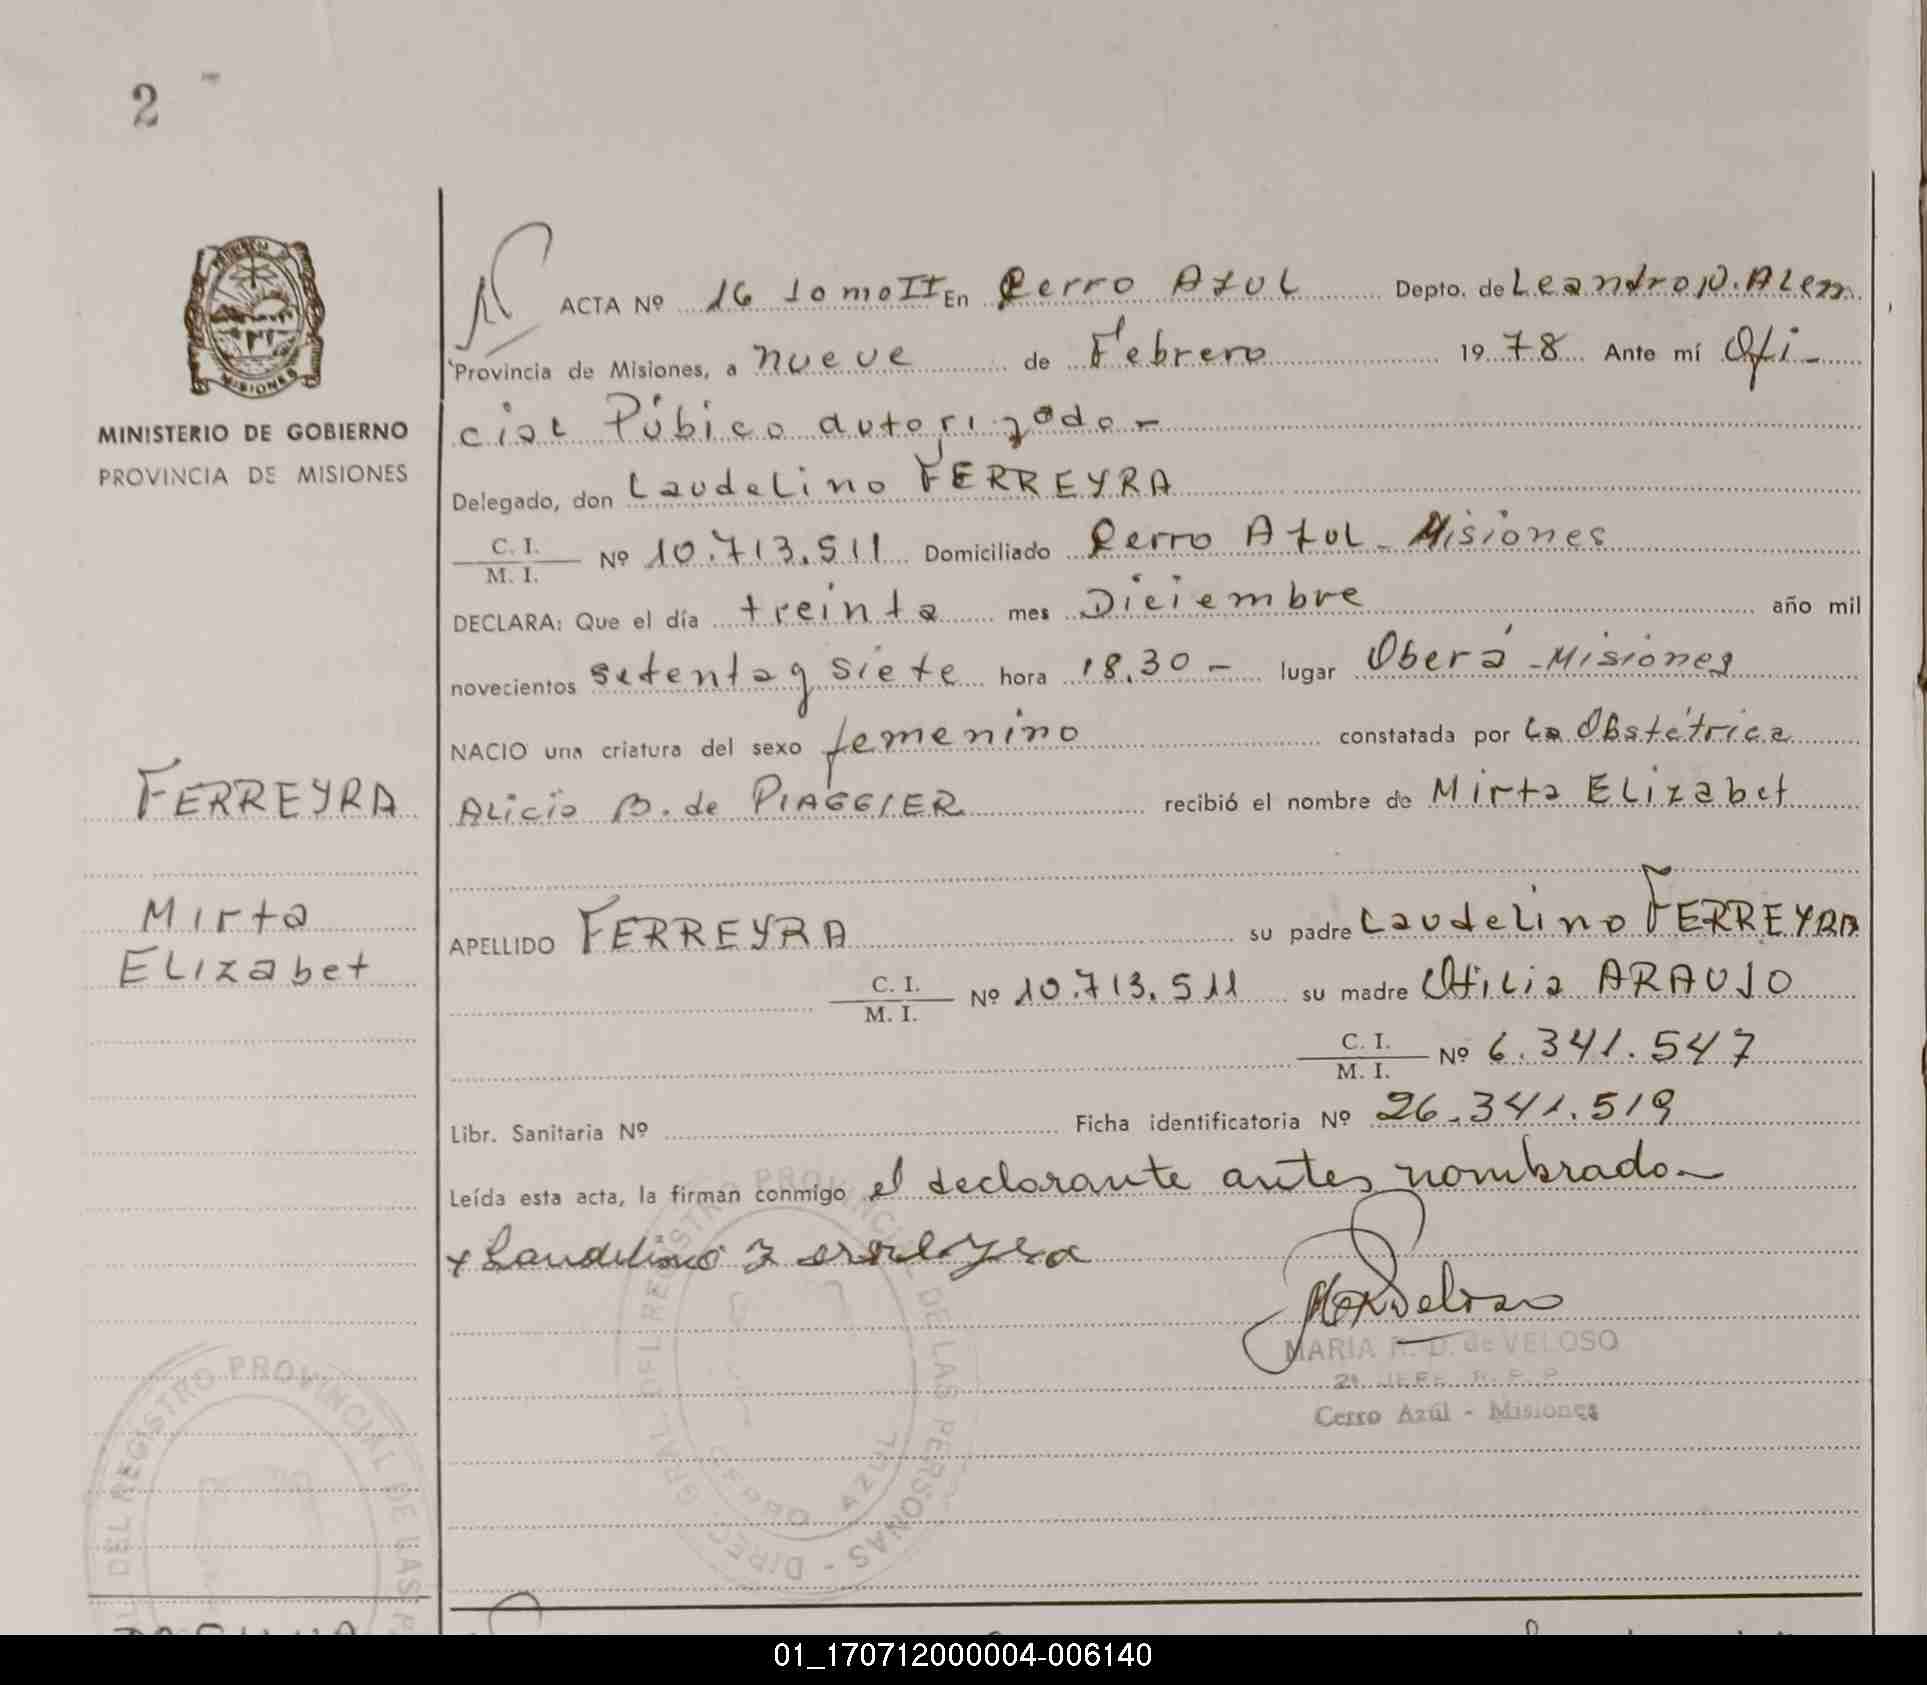 2
MINISTERIO DE GOBIERNO
PROVINCIA DE MISIONES
ACTA Nº 16 Tomo II En Cerro Azul Depto. de Leandro N. Alem
Provincia de Misiones, a nueve de Febrero 1978 Ante mí Ofi-
cial Púbico autorizado-
Delegado, don Laudelino FERREYRA
C. I.
M. I.
Nº 10.713.511 Domiciliado Cerro Azul - Misiones
DECLARA: Que el día treinta mes Diciembre año mil
novecientos setenta y siete hora 18.30 - lugar Oberá - Misiones
NACIO una criatura del sexo femenino constatada por La Obstétrica
Alicia B. de PIAGGIER recibió el nombre de Mirta Elizabet
APELLIDO FERREYRA su padre Laudelino FERREYRA
C. I.
M. I.
Nº 10.713.511 su madre Otilia ARAUJO
C. I.
M. I.
Nº 6.341.547
Libr. Sanitaria Nº Ficha identificatoria Nº 26.341.519
Leída esta acta, la firman conmigo el declarante antes nombrado-
x Laudelino Ferreyra
MARIA R. D. de VELOSO
Cerro Azúl - Misiones
FERREYRA
Mirta
Elizabet
DIREC. GRAL. DEL REGISTRO PROVINCIAL DE LAS PERSONAS -
CERRO AZUL
DEL REGISTRO PROVINCIAL DE LAS P
01_170712000004-006140